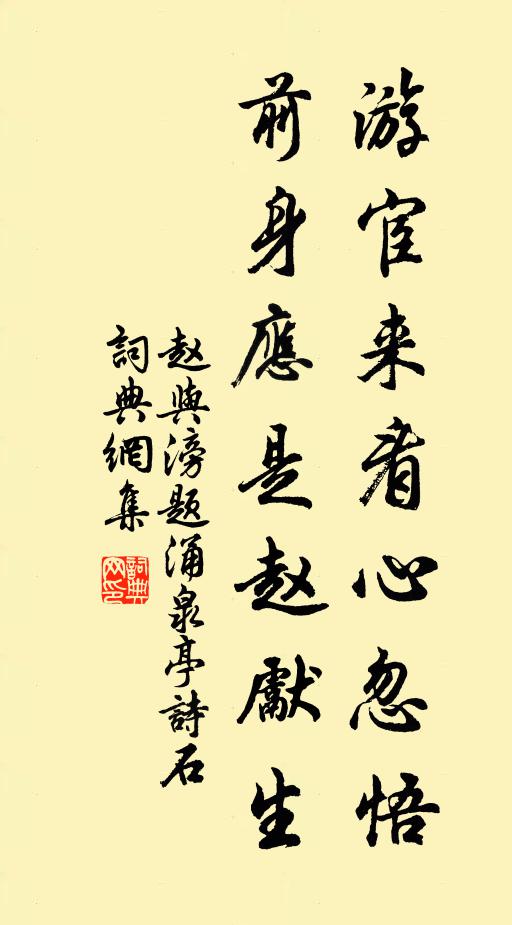 游宦来看心忽悟
前身應是赵獻生
赵與滂题涌泉亭詩石
詞典網集
詞典网印